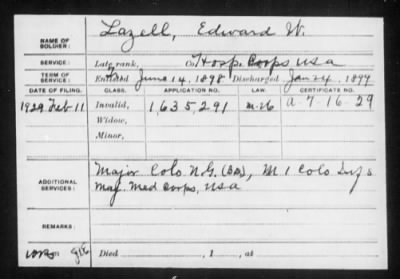 NAME OF SOLDIER: Lazell, Edward W.
SERVICE: Late rank, Co. Hosp. Corps USA
TERM OF SERVICE: Enlisted June 14, 1898 Discharged Jan 24, 1899
DATE OF FILING. CLASS. APPLICATION NO. LAW. CERTIFICATE NO.
1929 Feb 11 Invalid, 1,635,291 a-7-16-29
Widow,
Minor,
ADDITIONAL SERVICES: Major Colo. N.G. M 1 Colo. Inf
Maj. Med Corps, USA
REMARKS:
Died , 1 , at